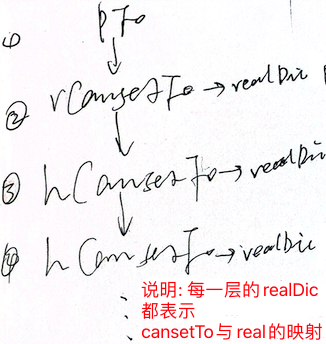 ① pFo
② rCansetFo→realDic
③ hCansetFo→realDic
④ hCansetFo→realDic
说明: 每一层的realDic
都表示
cansetTo与real的映射